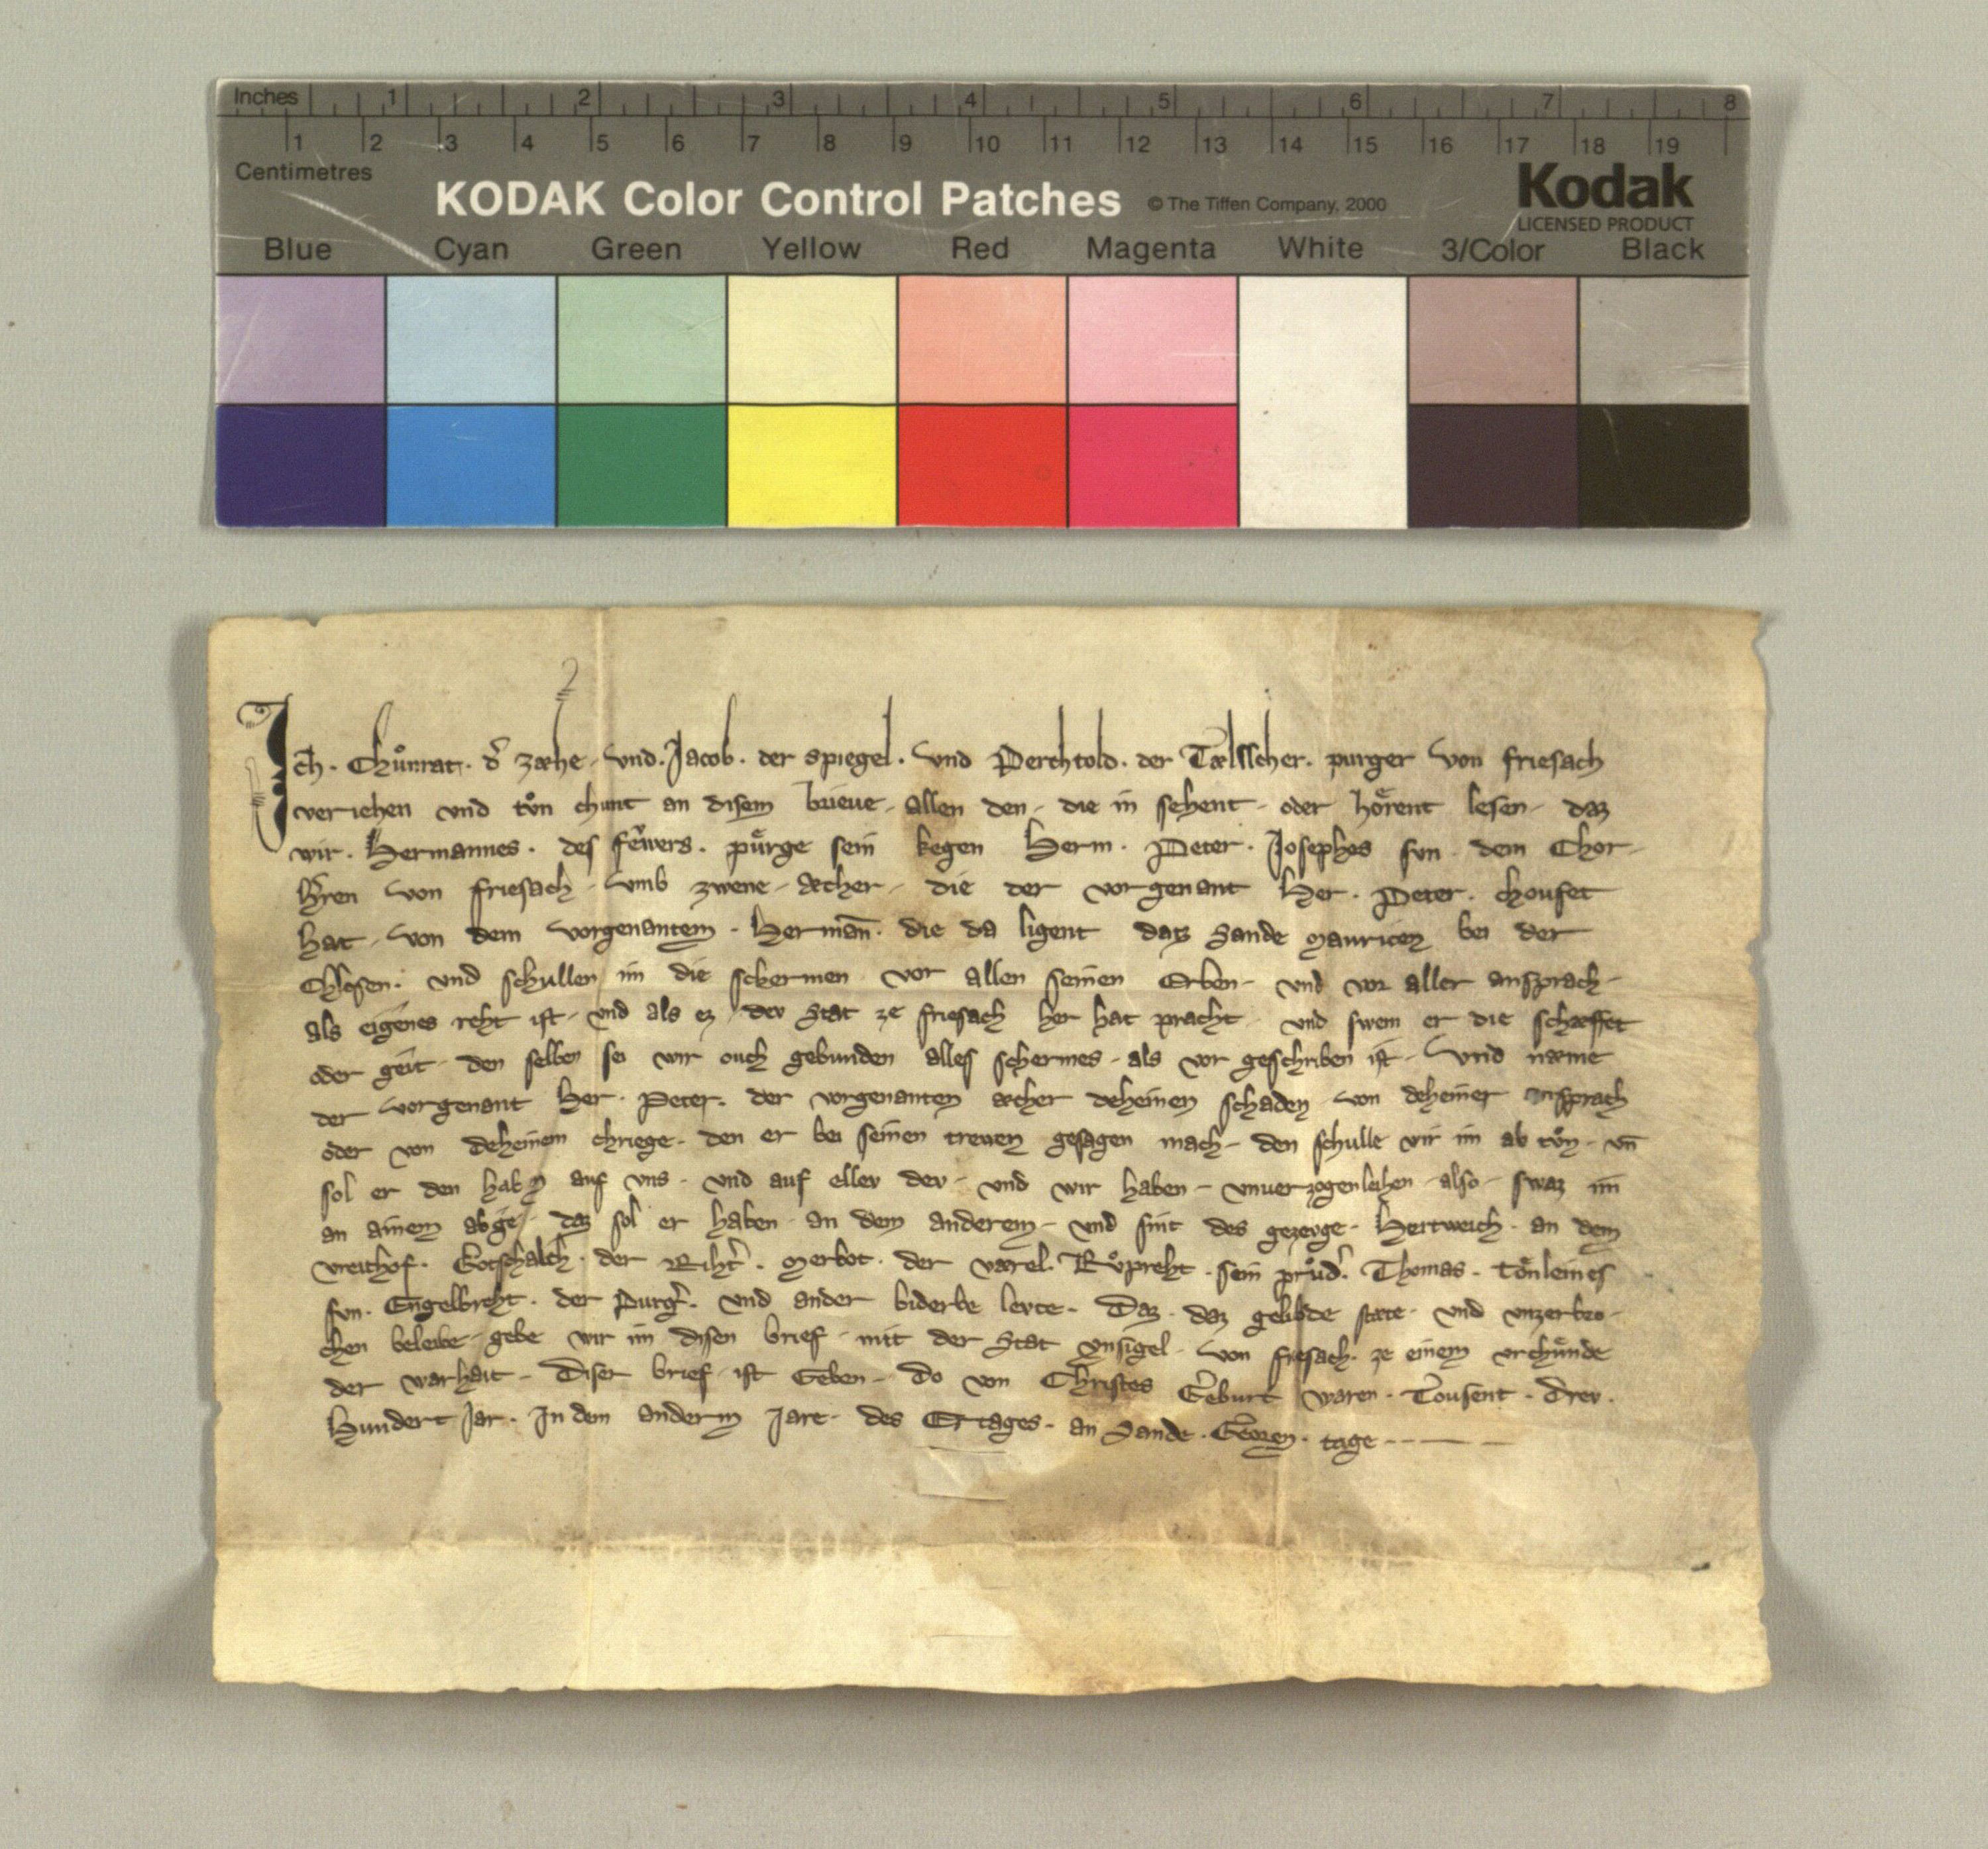 Inches 1 2 3 4 5 6 7 8
1 2 3 4 5 6 7 8 9 10 11 12 13 14 15 16 17 18 19
Centimetres
KODAK Color Control Patches © The Tiffen Company, 2000 Kodak
LICENSED PRODUCT
Blue Cyan Green Yellow Red Magenta White 3/Color Black
Ich · Chuͦnrat · d' zæhe · vnd · Jacob · der spiegel · vnd Perchtold · der Tælsscher · purger von friesach
veriehen vnd tuͦn chunt an disem brieue · allen den · die in sehent · oder hoͤrent lesen · daz
wir · Hermannes · des · puͤrge sein kegen Herm · Peter · Josephes svn dem Chor-
h'ren von friesach · vmb zwene · æcher · die der vorgenant Her · Peter · choufet
hat · von dem vorgenantem · Herman̄ · die da ligent datz Sande Mauricen bei der
Chlosen · vnd schullen im die schermen vor allen seinen Erben · vnd vor aller ansprach ·
als eigenes reht ist · vnd als ez der Stat ze friesach her hat pracht · vnd swem er die schæffet
oder geit · den selben sei wir ouch gebunden alles schermes · als vor geschriben ist · vnd næme
der vorgenant Her · Peter · der vorgenanten æcher deheinen schaden von deheiner ansprach
oder von deheinem chriege · den er bei seinen trewen gesagen mach · den schulle wir im ab tuͦn · vn̄
sol er den haben auf vns · vnd auf eller der · vnd wir haben · vnuerzogenleihen · also · swaz im
an ainem abge · daz sol er haben · an dem anderem · vnd sint des gezevge · Hertweich · an dem
vreithof · Gotschalch · der Riht' · Merbot · der værel · Ruͦpreht · sein pruͦd' · Thomas · toͤnleines
svn · Engelbreht · der Purg' · vnd ander biderbe levte · Daz · daz gelubde stæte · vnd vnzerbro-
chen beleibe · gebe wir im disen brief · mit der Stat ynsigel · von friesach · ze einem vrchuͤnde
der warhait · Diser brief ist Geben · Do von Christes Geburt waren · Tousent · Drev ·
Hundert Jar · In dem anderm Jare · des Ertages · an Sande · Georen · tage